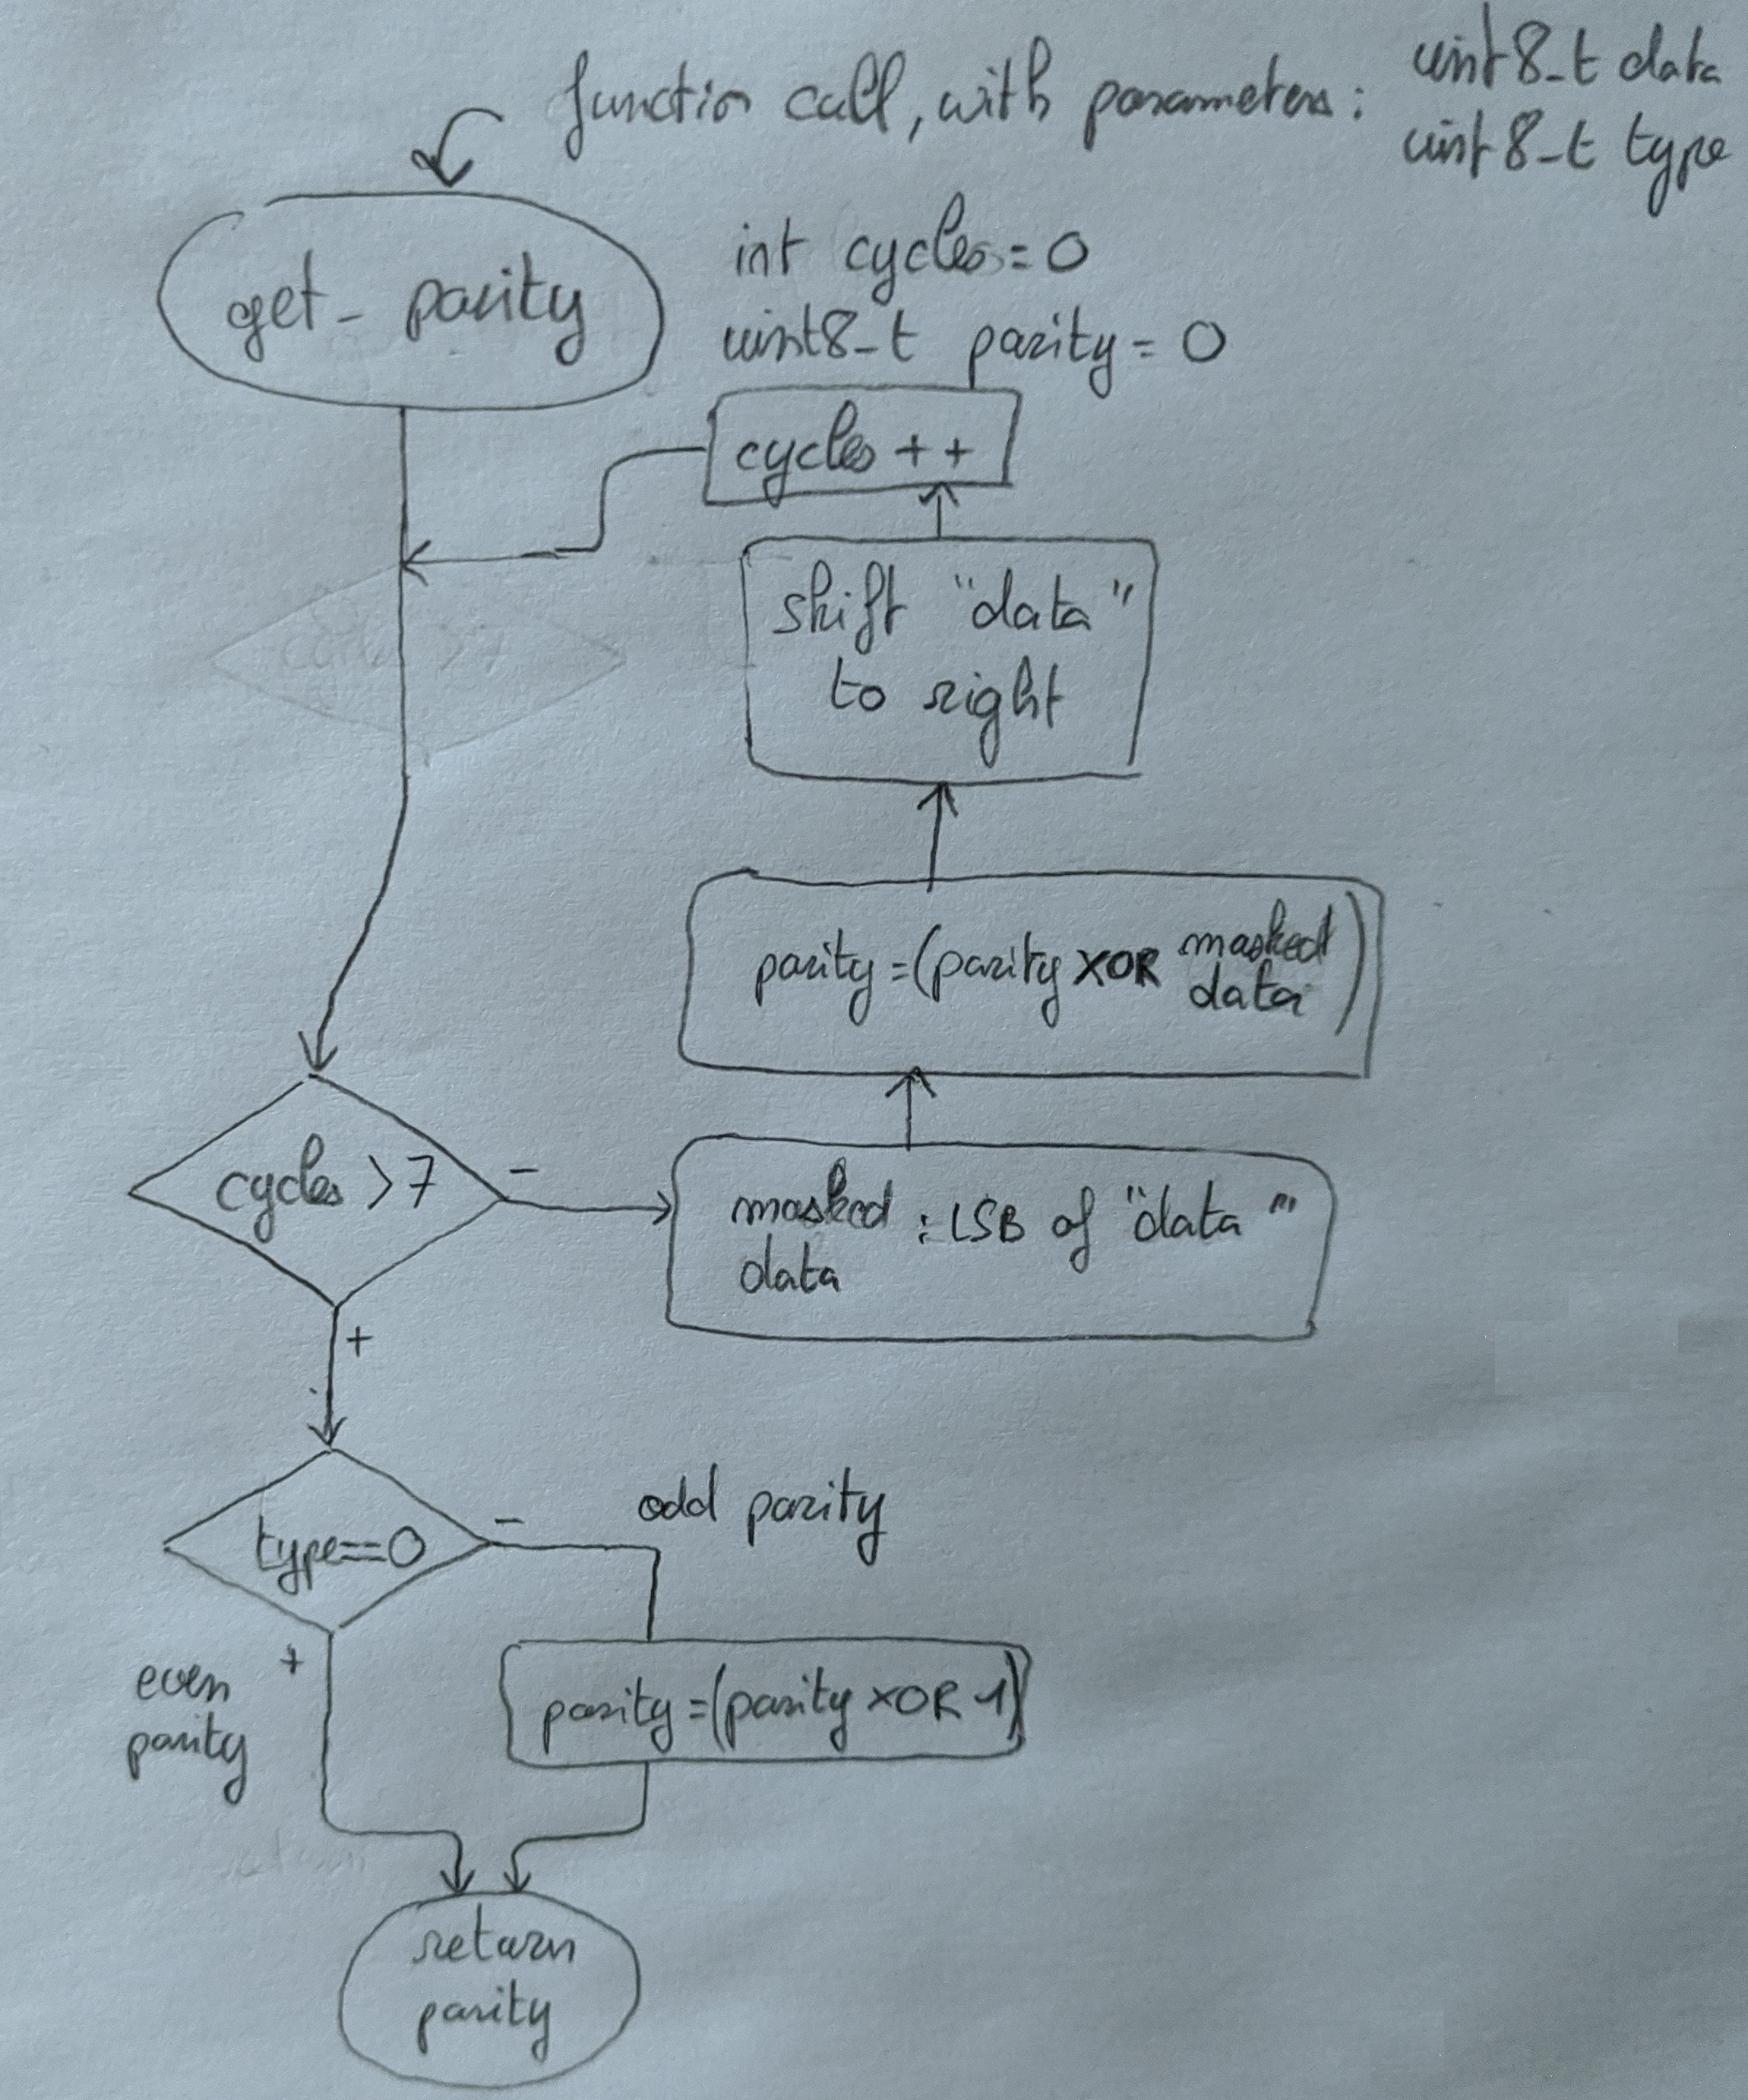 function call, with parameters:
uint8_t data
uint8_t type
get_parity
int cycles=0
uint8_t parity=0
cycles++
shift "data"
to right
parity=(parity XOR masked data)
cycles>7
-
masked : LSB of "data"
data
+
type==0
-
odd parity
+
even
parity
parity=(parity XOR 1)
return
parity